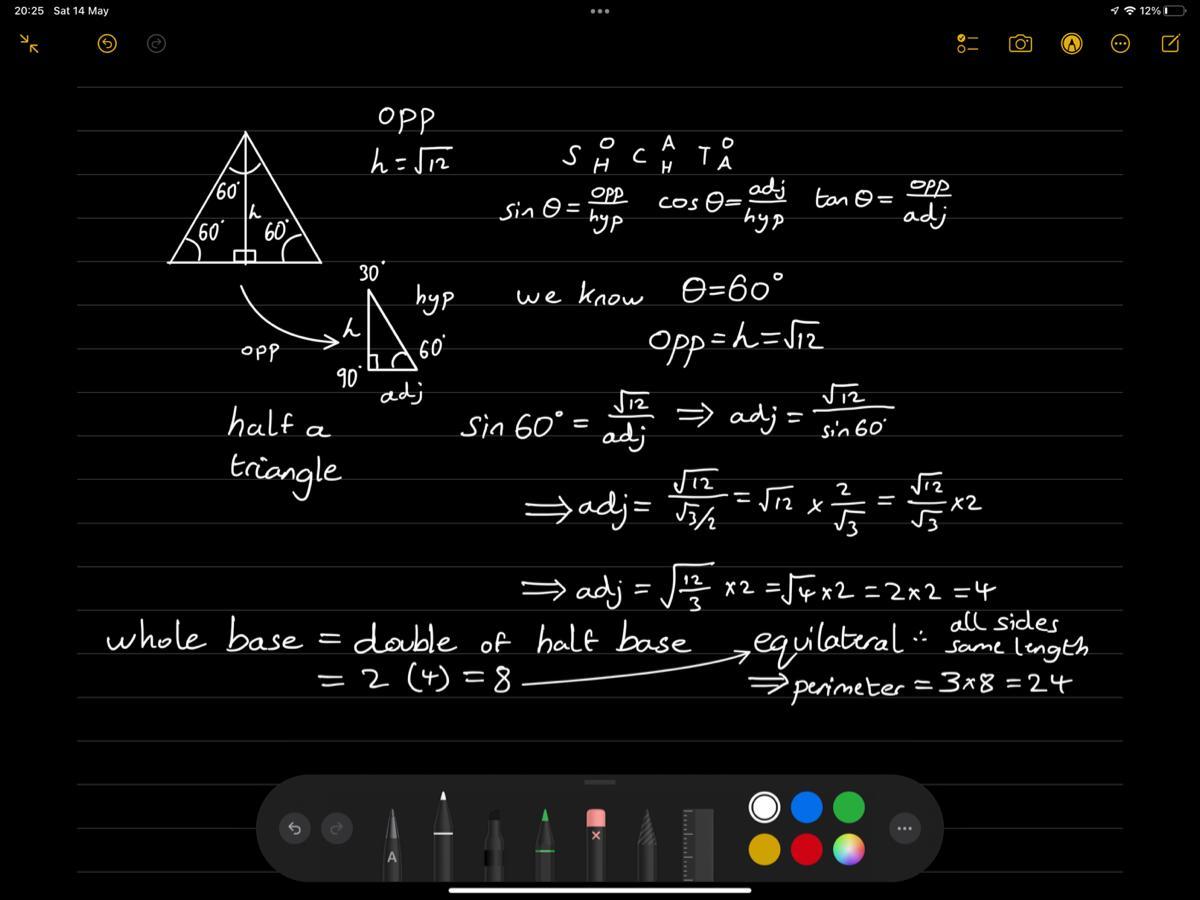 20:25 Sat 14 May
12%
opp
h = √12
S O/H C A/H T O/A
sin θ = opp/hyp cos θ = adj/hyp tan θ = opp/adj
60°
h
60° 60°
30°
hyp
we know θ = 60°
h
opp = h = √12
opp
60°
90°
adj
half a
triangle
sin 60° = √12/adj ⇒ adj = √12/sin 60°
⇒ adj = √12/(√3/2) = √12 × 2/√3 = √12/√3 × 2
⇒ adj = √(12/3) × 2 = √4 × 2 = 2 × 2 = 4
whole base = double of half base
= 2 (4) = 8
equilateral ∴ all sides
same length
⇒ perimeter = 3 × 8 = 24
A